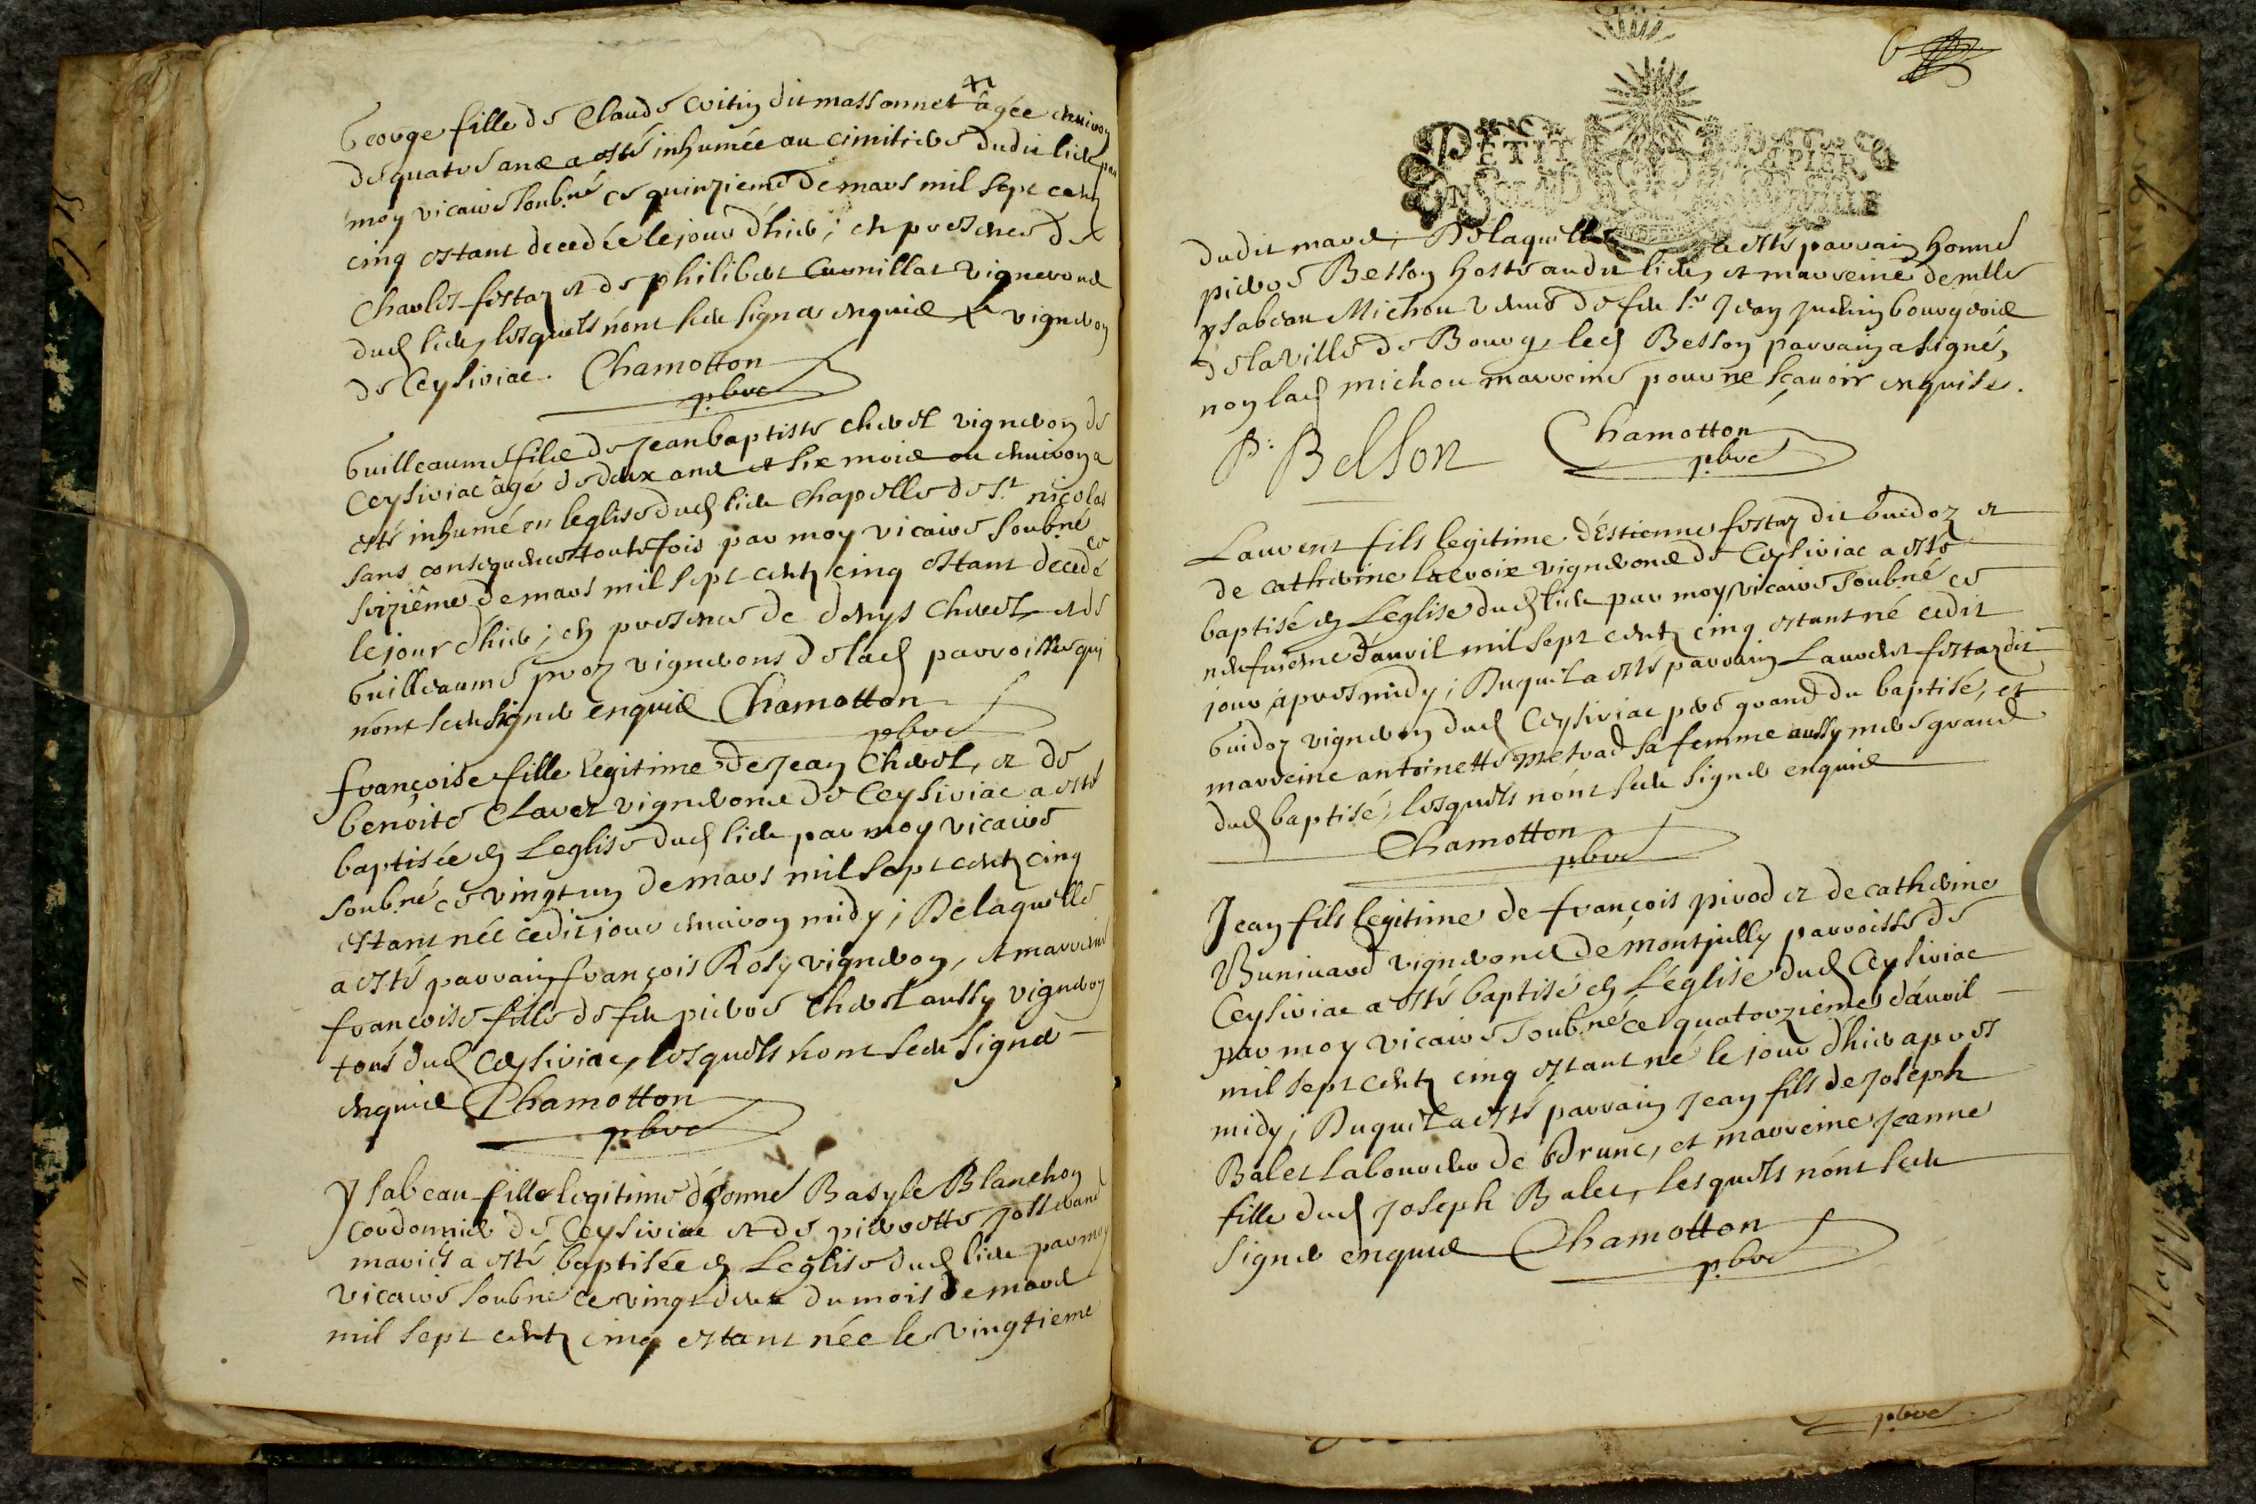 George fille de Claude Coitin dit massonnet agée environ
de quatre ans a esté inhumée au cimitiere dudit lieu par
moy vicaire soubné ce quinzieme de mars mil sept centz
cinq estant decedée le jour d'hier; en presence de
Charles festaz et de philibert Cuvnillat vignerons
dud lieu, lesquels n'ont sceu signer enquis vigneron
de Ceysiriac. Chamotton
pbre
Guilleaume fils de Jean baptiste chevel vigneron de
Ceysiriac âgé de deux ans et six mois ou environ a
esté inhumé en leglise dud lieu chapelle de St nicolas
sans consequence toutefois par moy vicaire soubné ce
seizième de mars mil sept centz cinq estant decedé
le jour d'hier; en presence de denys Chevel et de
Guilleaume proz vignerons de lad parroisse qui
n'ont sceu signer enquis Chamotton
pbre
françoise fille legitime de Jean Chevel, et de
benoite Clavel vignerons de Ceysiriac a esté
baptisée en Leglise dud lieu par moy vicaire
soubné ce vingt un de mars mil sept centz cinq
estant née cedit jour environ midy; De laquelle
a esté parrain françois Rosy vigneron, et marreine
françoise fille de feu pierre Chevel aussy vigneron
tous dud Ceysiriac, lesquels n'ont sceu signer
enquis Chamotton
pbre
Ysabeau fille legitime d'honne Basyle Blanchon
Cordonnier de Ceysiriac et de pierrette Josserand
mariés a esté baptisée en Leglise dud lieu par moy
vicaire soubné ce vingt deux du mois de mars
mil sept centz cinq estant née le vingtieme
6
PETIT PAPIER
dudit mars; De laquelle a esté parrain honne
pierre Besson hoste audit lieu, et marreine demlle
ysabeau Michou veuve de feu Sr Jean bourgeois
de la ville de Bourg, led Besson parrain a signé,
non lad michou marreine pour ne sçavoir enquise.
P. Besson Chamotton
pbre
Laurent fils legitime d'Estienne festaz dit Guidoz et
de catherine Lacroix vignerons de Ceysiriac a esté
baptisé en Leglise dud lieu par moy vicaire soubné ce
neufvieme d'avril mil sept centz cinq estant né cedit
jour apres midy; Duquel a esté parrain Laurent festaz dit
Guidoz vigneron dud Ceysiriac pere grand du baptisé, et
marreine antoinette metrad sa femme aussy mere grand
dud baptisé, lesquels n'ont sceu signer enquis
Chamotton
pbre
Jean fils legitime de françois pirod et de catherine
Bunivard vignerons de montjully parroisse de
Ceysiriac a esté baptisé en L'église dud Ceysiriac
par moy vicaire soubné ce quatorzieme d'avril
mil sept centz cinq estant né le jour d'hier apres
midy; Duquel a esté parrain Jean fils de Joseph
Balet laboureur de Drunc, et marreine Jeanne
fille dud Joseph Balet, lesquels n'ont sceu
signer enquis Chamotton
pbre
pbre